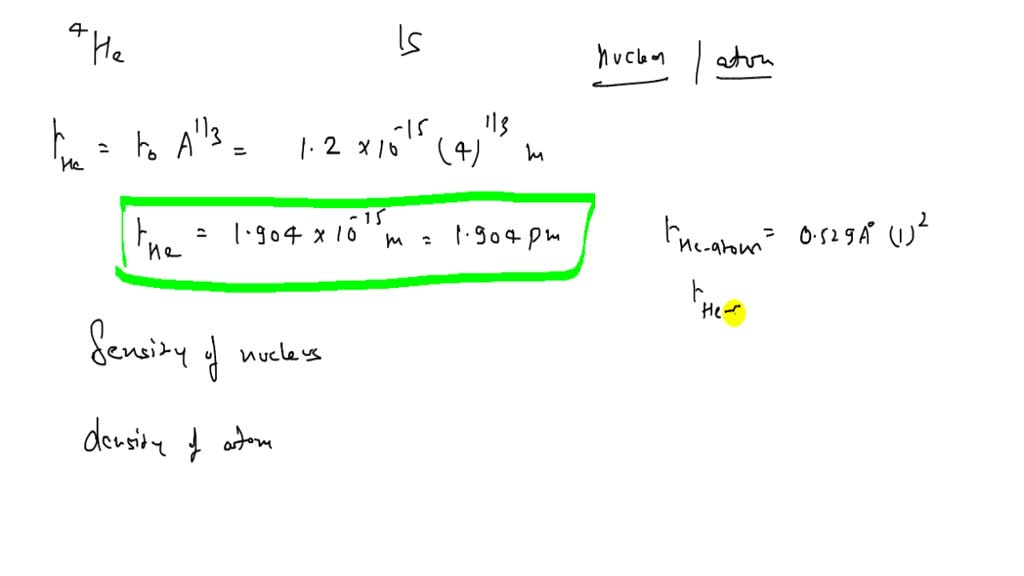 ⁴He 1s nuclen / atom
r_He = r₀ A^1/3 = 1.2 × 10⁻¹⁵ (4)^1/3 m
r_He = 1.904 × 10⁻¹⁵ m = 1.904 pm
r_He-atom = 0.529 A° (1)²
r_He-
Density of nucleus
density of atom